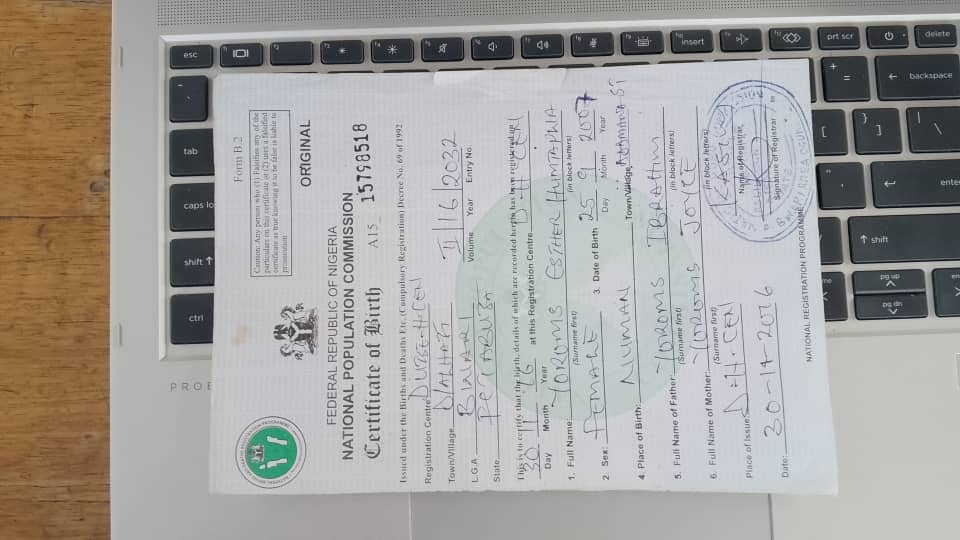 Form B.2
Caution: Any person who (1) Falsifies any of the particulars on this certificate or (2) uses a falsified certificate as true knowing it to be false is liable to prosecution
FEDERAL REPUBLIC OF NIGERIA
NATIONAL POPULATION COMMISSION
ORIGINAL
Certificate of Birth A15 15798518
Issued under the Births and Deaths Etc. (Compulsory Registration) Decree No. 69 of 1992
Registration Centre
Town/Village
L.G.A BWARI II 16 2032
Volume Year Entry No.
State
This is to certify that the birth, details of which are recorded herein has been registered on
30 11 16 at this Registration Centre
Day Month Year
1. Full Name: YOROMS ESTHER
(Surname first) (in block letters)
2. Sex: FEMALE 3. Date of Birth 25 9 2007
Day Month Year
4. Place of Birth: NUMAN Town/Village
5. Full Name of Father: YOROMS IBRAHIM
(Surname first) (in block letters)
6. Full Name of Mother: YOROMS JOYCE
(Surname first) (in block letters)
Place of Issue:
Name of Registrar
Date: 30-11-2016
Signature of Registrar
NATIONAL REGISTRATION PROGRAMME
esc
insert
prt scr
delete
backspace
tab
caps lo
enter
shift
shift
ctrl
pg up
pg dn